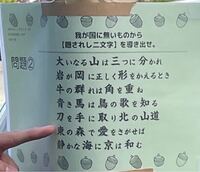 我が国に無いものから
【隠されし二文字】を導き出せ。
問題②
大いなる山は三つに分かれ
岩が岡に正しく形をかえるとき
牛の群れは角を重ね
青き馬は鳥の歌を知る
刀を手に取り北の山道
東の森で愛をさがせば
静かな海に京は和む